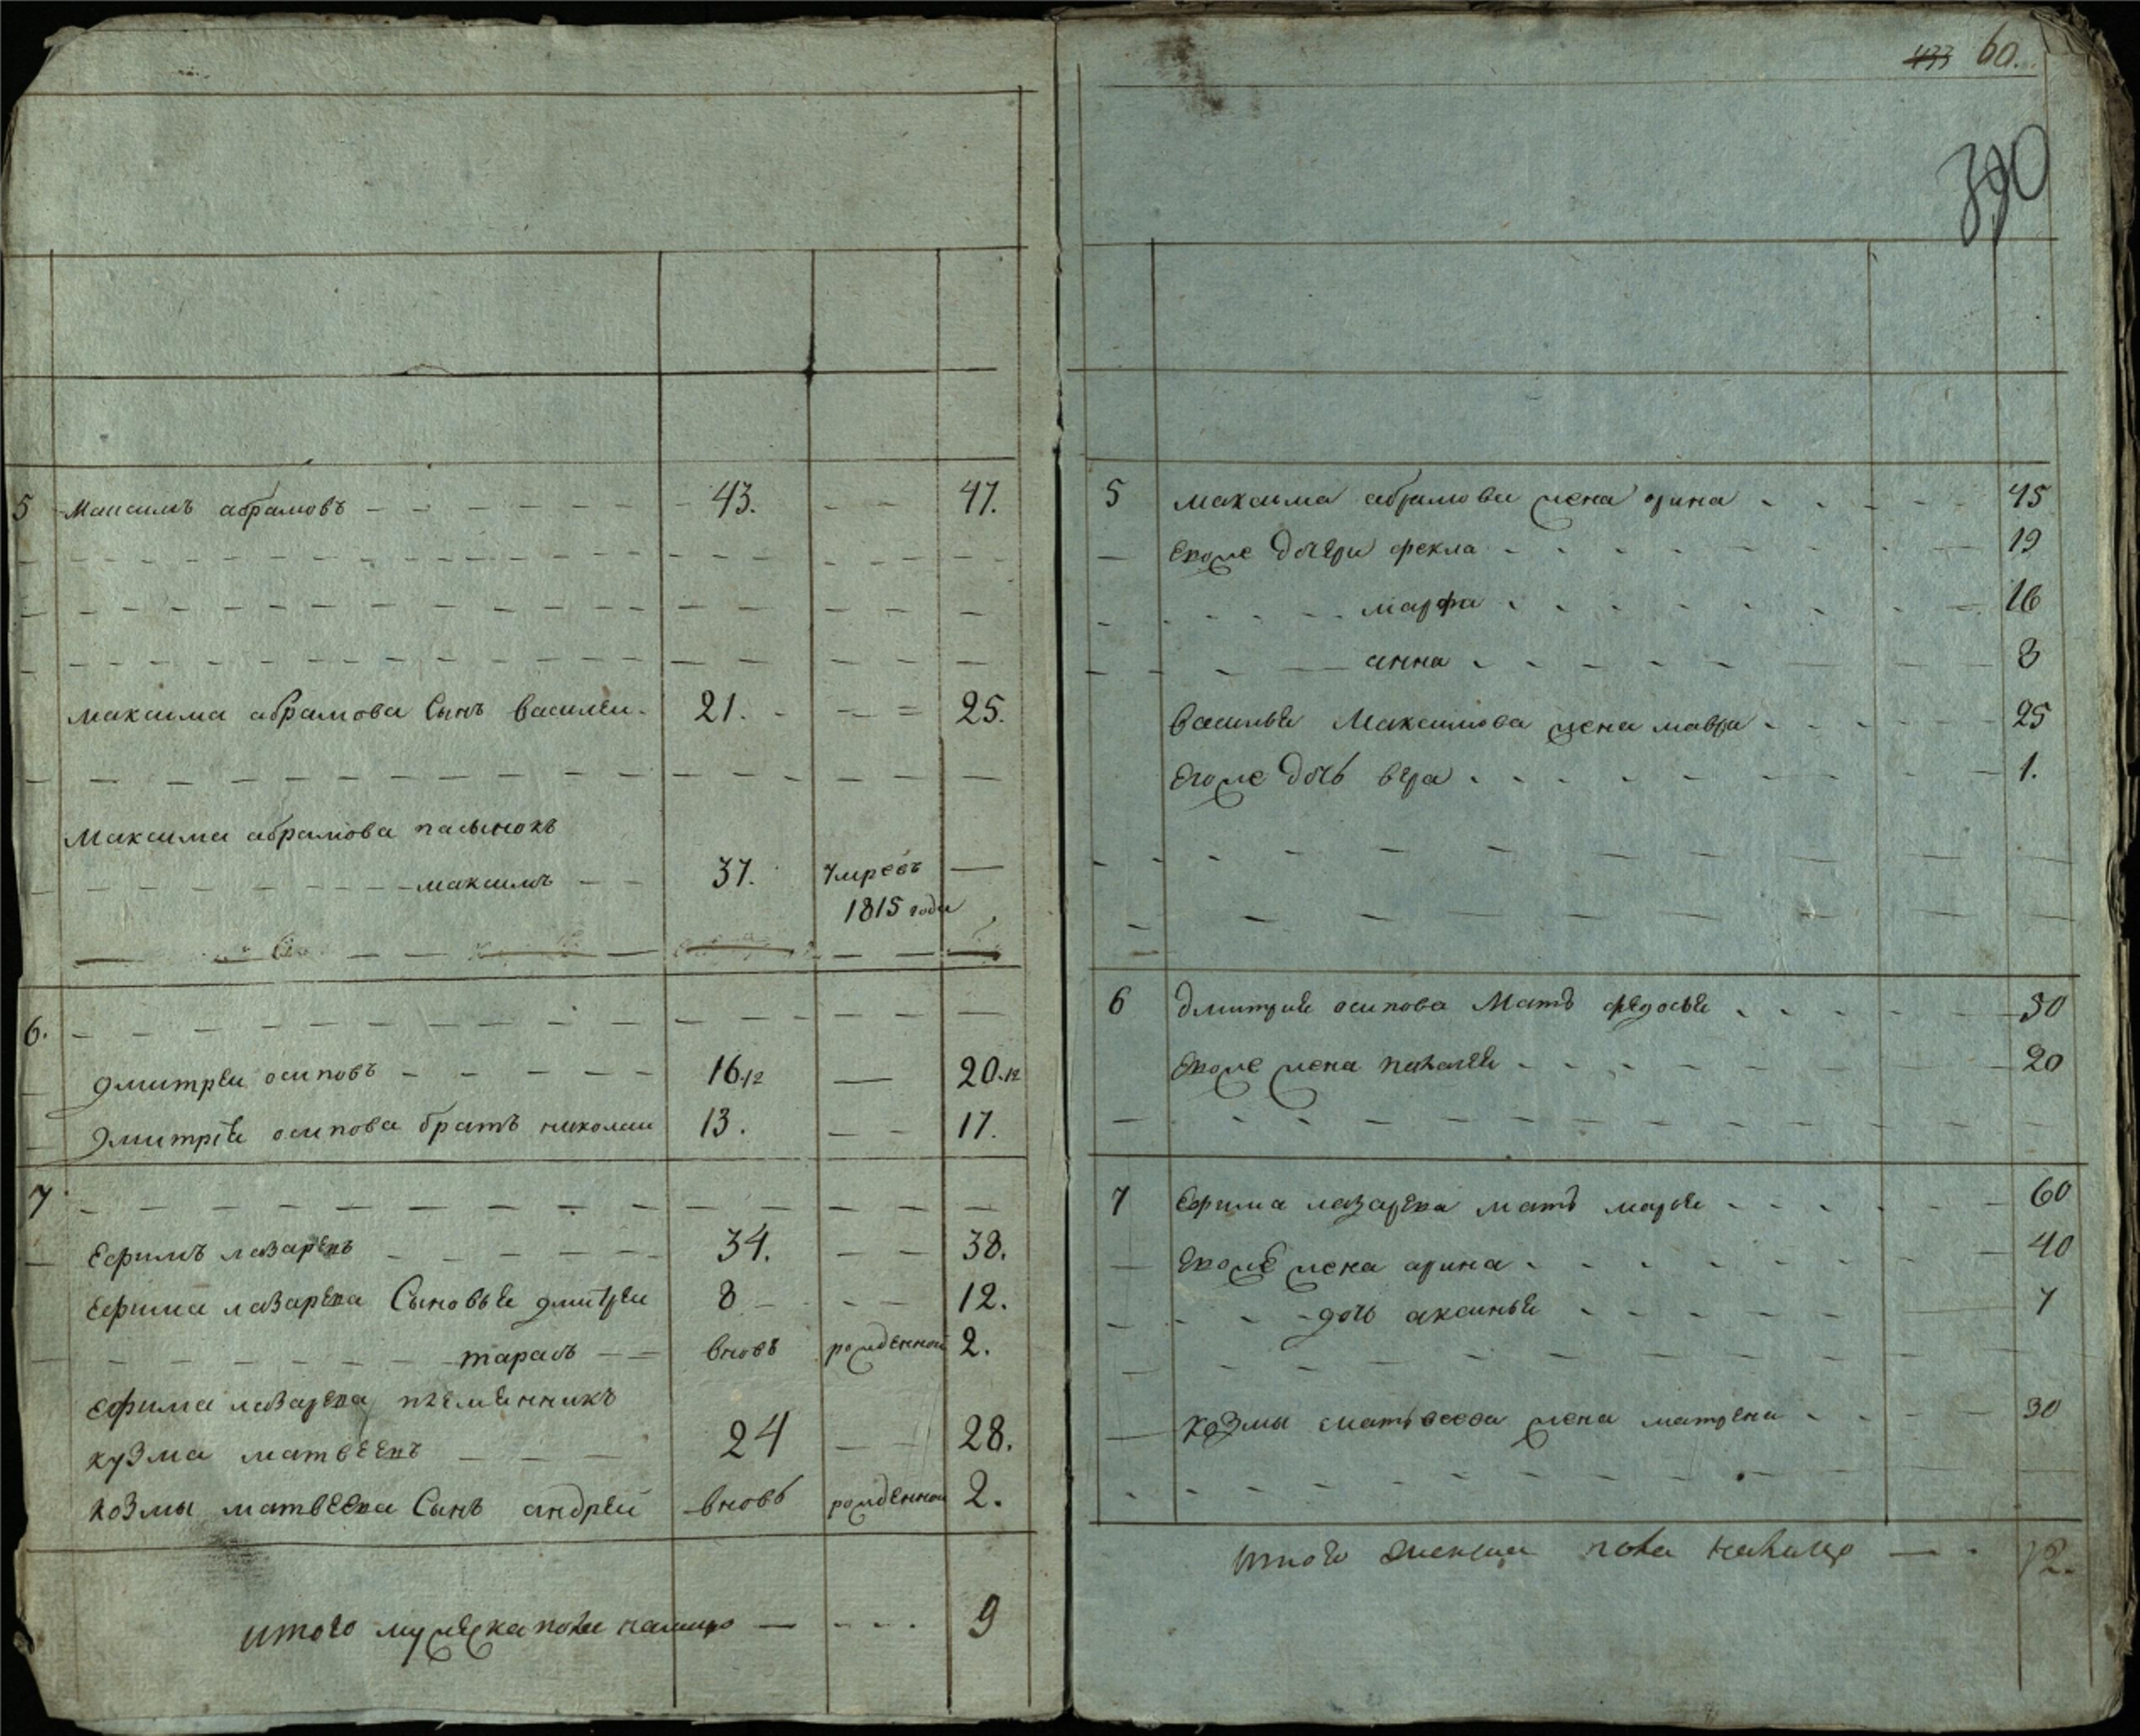 5 Максимъ абрамовъ 43. 47.
максима абрамова Сынъ василеи 21. 25.
Максима абрамова пасынокъ
максимъ 37. умре въ
1815 годе
6.
дмитреи осиповъ 16.12 20.12
дмитрее осипова братъ николаи 13. 17.
7
Ефимъ лазаревъ 34. 38.
Ефима лазарева Сыновье дмитреи 8 12.
тарасъ вновь рожденной 2.
ефима лазарева племенникъ
кузма матвеевъ 24 28.
козмы матвеева Сынъ андреи вновь рожденнои 2.
итого мужеска пола налицо 9
433 60.
390
5 максима абрамова жена орина 45
Евоже дочери фекла 19
марфа 16
анна 8
василье Максимова жена мавра 25
Евоже дочь вера 1.
6 дмитрие осипова Мать федосье 50
Евоже жена 20
7 Ефима лазарева мать марье 60
Евоже жена арина 40
дочь аксинье 7
козмы матвеева жена матрена 30
итого женска пола налицо 12.